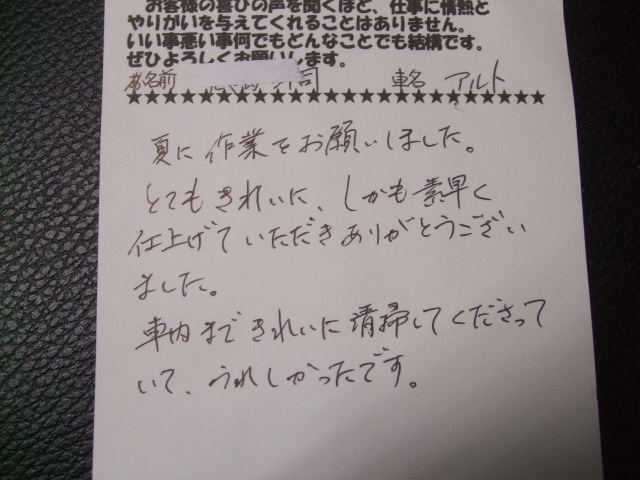 お客様の喜びの声を聞くほど、仕事に情熱と
やりがいを与えてくれることはありません。
いい事悪い事何でもどんなことでも結構です。
ぜひよろしくお願いします。
お名前 司 車名 アルト
★★★★★★★★★★★★★★★★★★★★★★★★★★★★
夏に作業をお願いしました。
とてもきれいに、しかも素早く
仕上げていただきありがとうござい
ました。
車内まできれいに清掃してくださって
いて、うれしかったです。